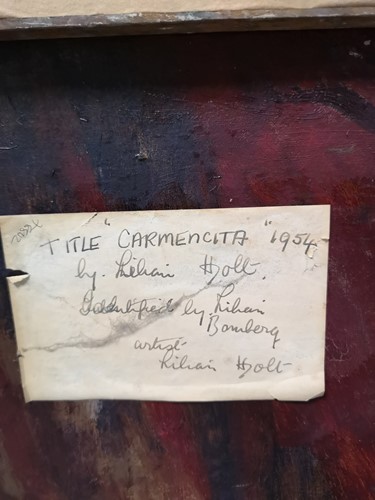 TITLE "CARMENCITA" 1954
by. Lilian Holt.
Identified by Lilian
Bomberg
artist
Lilian Holt